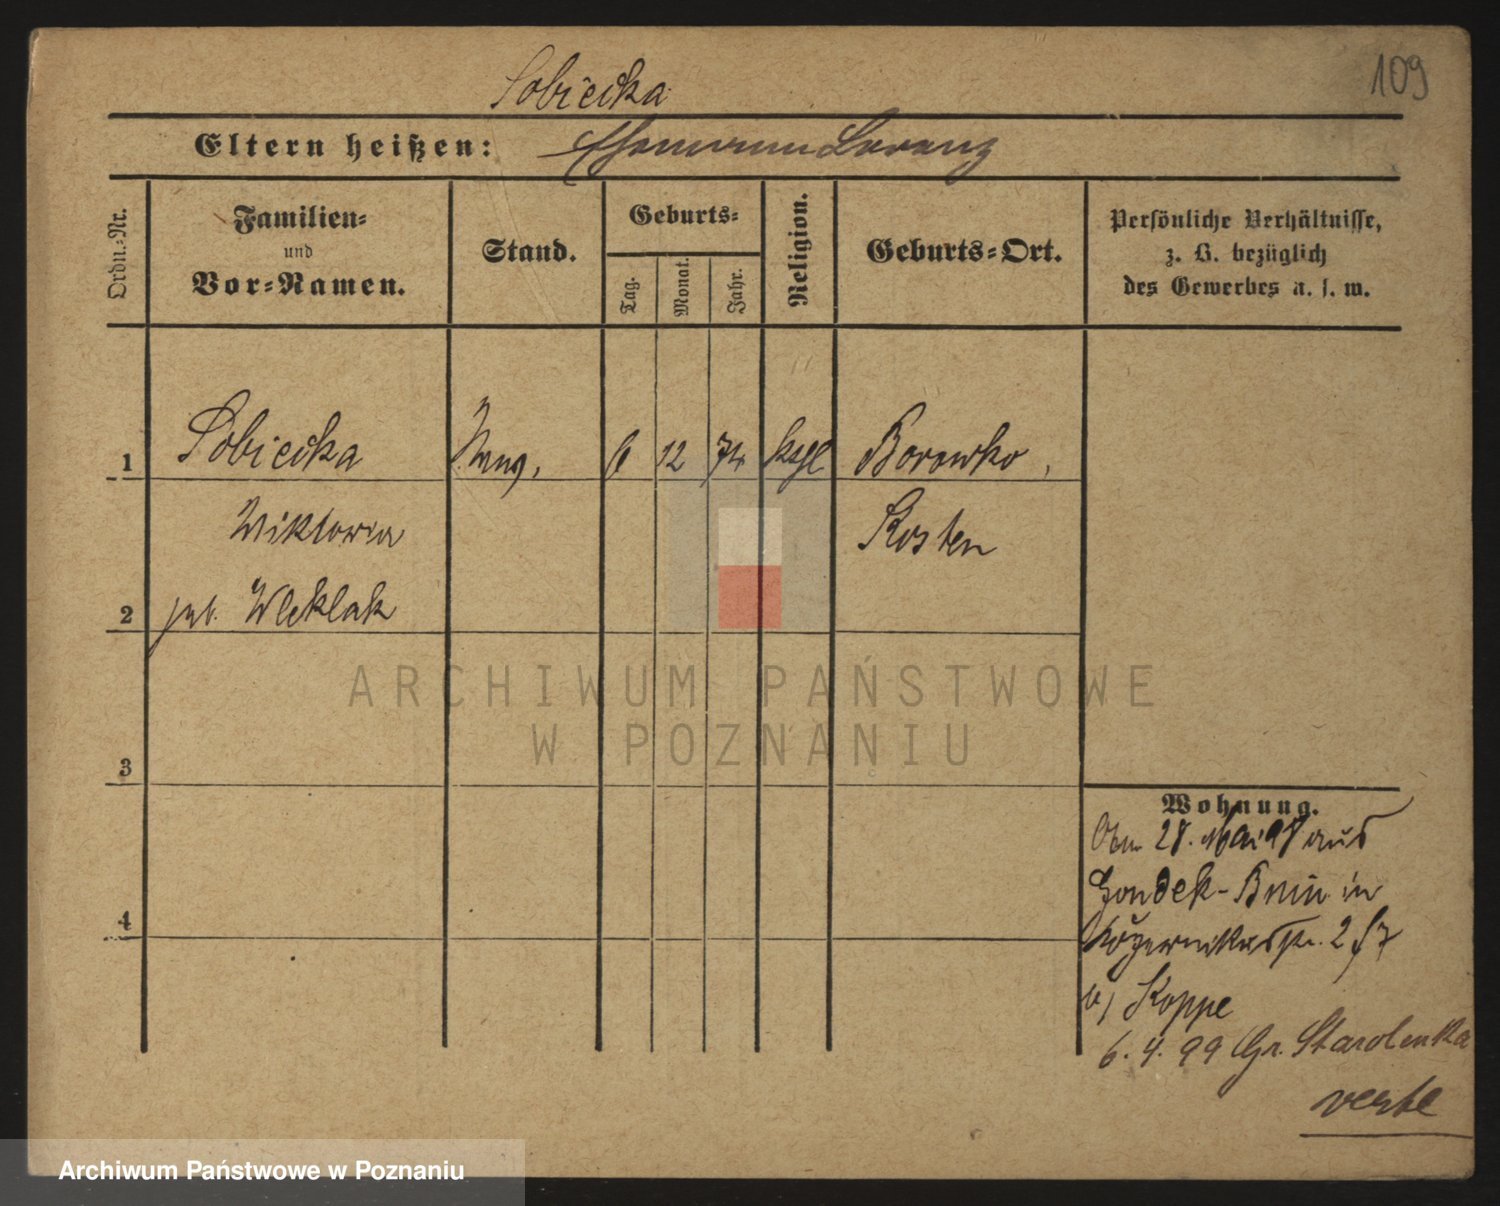 109
Sobiecka
Eltern heißen: Ehemann Lorenz
Ordn.-Nr.
Familien-
und
Vor-Namen.
Stand.
Geburts-
Tag.
Monat.
Jahr.
Religion.
Geburts-Ort.
Persönliche Verhältnisse,
z. B. bezüglich
des Gewerbes u. s. w.
1 Sobiecka 6 12 74 ktgl Borowko,
Wiktoria Kosten
2 geb. Wleklak
3
4
Wohnung.
28. Mai 98 aus
Gondek-Bnin in
2
b/ Koppe
6. 4. 99 Gr. Starolenka
verte
ARCHIWUM PAŃSTWOWE
W POZNANIU
Archiwum Państwowe w Poznaniu